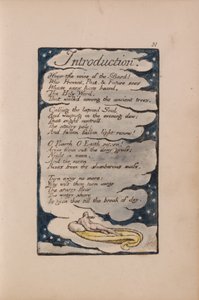 31
Introduction.
Hear the voice of the Bard!
Who Present, Past, & Future sees
Whose ears have heard,
The Holy Word,
That walk'd among the ancient trees.
Calling the lapsed Soul
And weeping in the evening dew:
That might controll
The starry pole:
And fallen fallen light renew!
O Earth O Earth return!
Arise from out the dewy grass;
Night is worn,
And the morn
Rises from the slumberous mass.
Turn away no more:
Why wilt thou turn away
The starry floor
The watry shore
Is giv'n thee till the break of day.